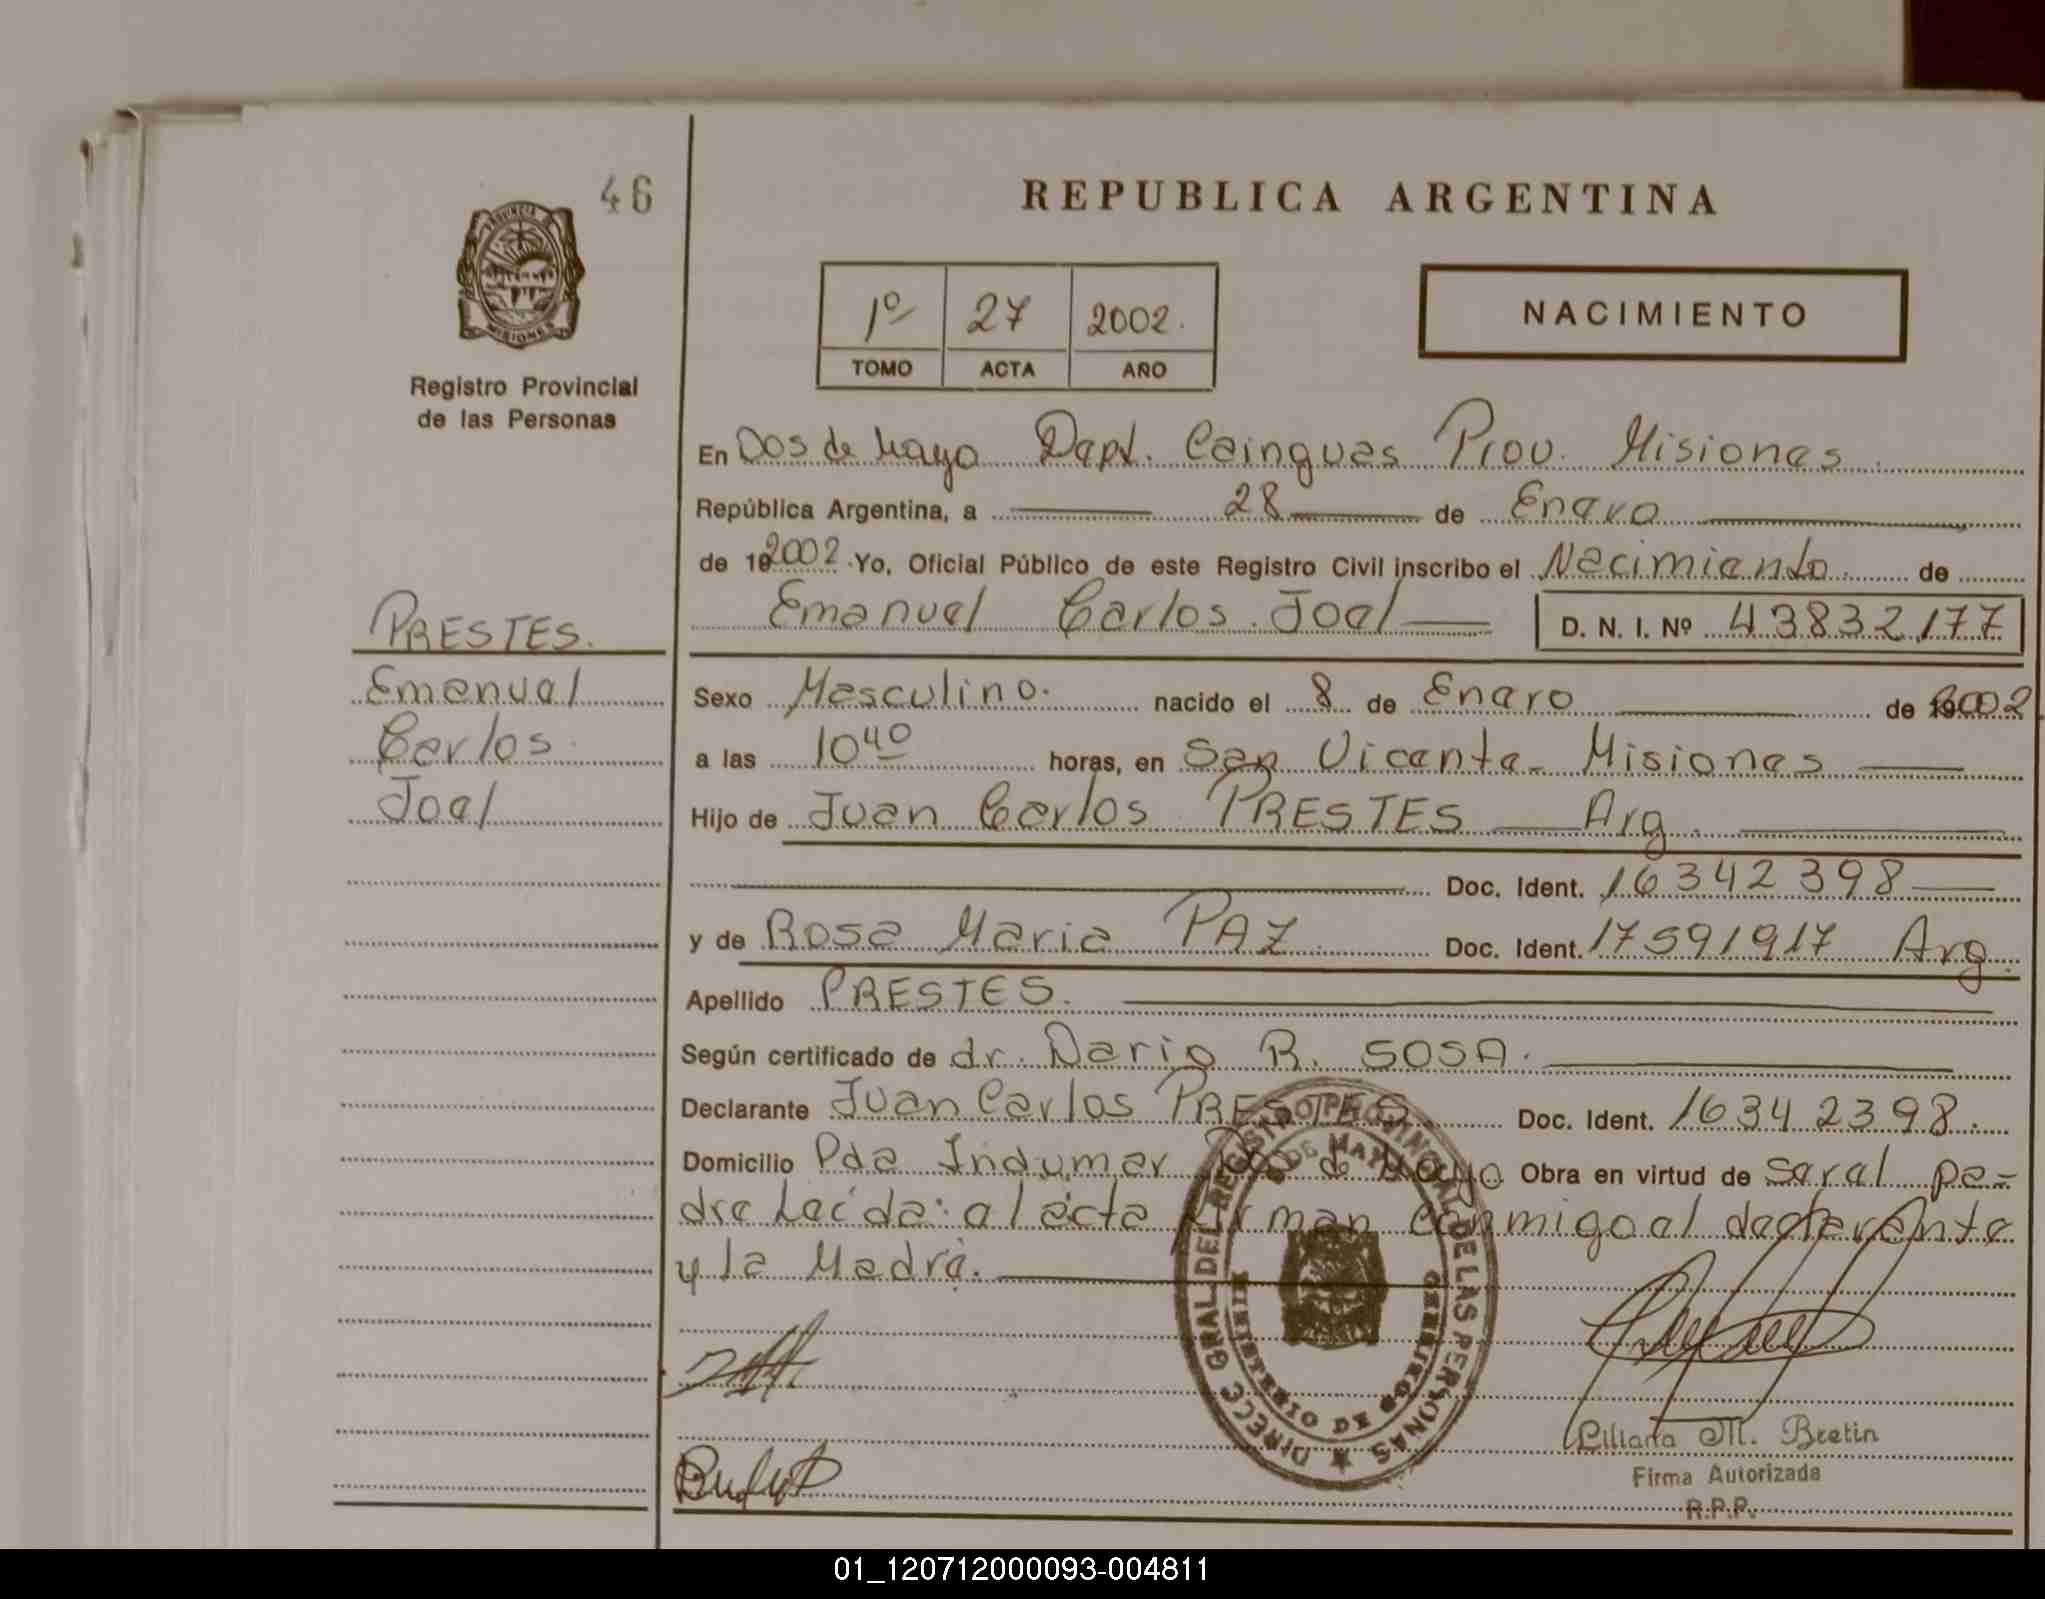 46
PROVINCIA DE
MISIONES
Registro Provincial
de las Personas
REPUBLICA ARGENTINA
1º 27 2002.
TOMO ACTA AÑO
NACIMIENTO
En Dos de Mayo Dept. Cainguas Prov. Misiones
República Argentina, a 28 de Enero
de 19 2002 Yo, Oficial Público de este Registro Civil inscribo el Nacimiento de
Emanuel Carlos Joel D. N. I. Nº 43832177
PRESTES.
Emanuel
Carlos
Joel
Sexo Masculino. nacido el 8 de Enero de 2002
a las 10 40 horas, en San Vicente - Misiones
Hijo de Juan Carlos PRESTES Arg.
Doc. Ident. 16342398
y de Rosa Maria PAZ Doc. Ident. 17591917 Arg.
Apellido PRESTES.
Según certificado de dr. Dario R. SOSA.
Declarante Juan Carlos PRESTES Doc. Ident. 16342398.
Domicilio Pda Indumar Dos de Mayo Obra en virtud de seral pa-
dre Leída: el acta firman conmigo el declarante
y la Madre.
DIRECC GRAL. DEL REGISTRO PROVINCIAL DE LAS PERSONAS
DE MAYO
MINISTERIO DE GOBIERNO
Liliana M. Bretin
Firma Autorizada
R.P.P.
01_120712000093-004811